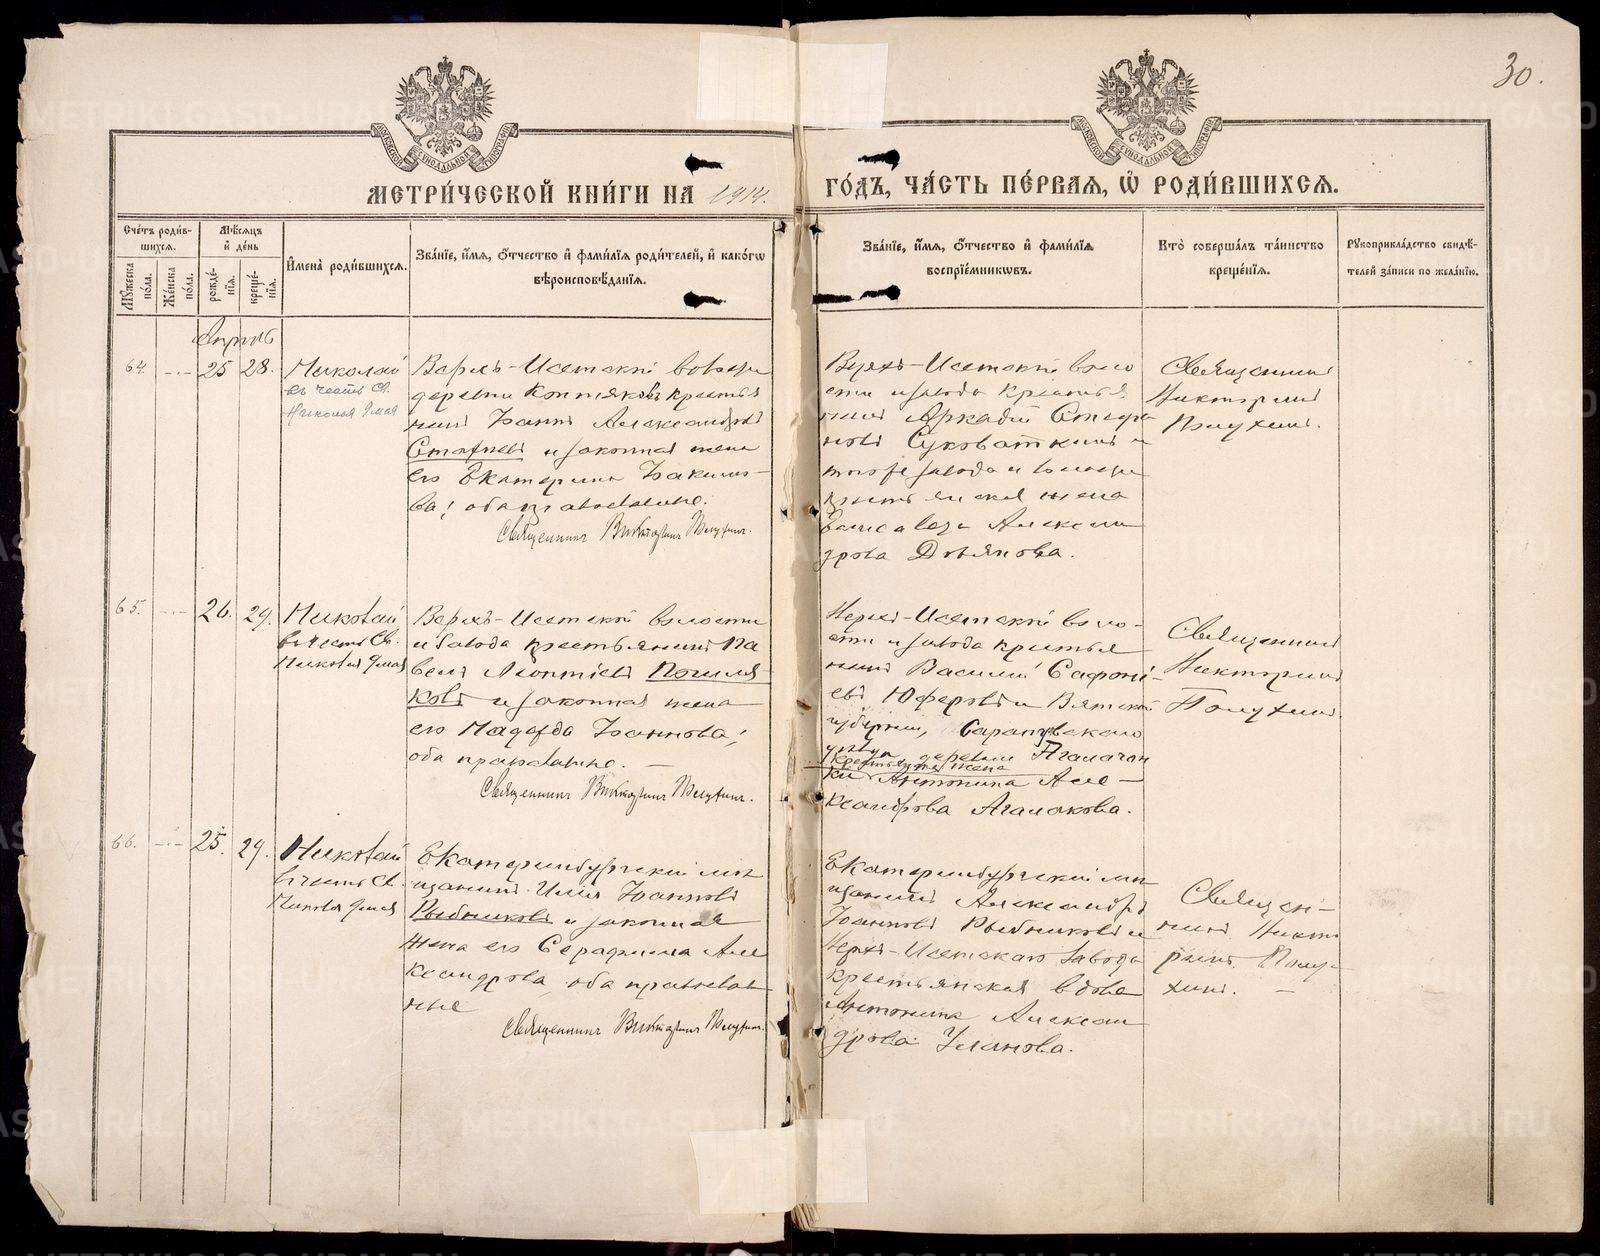 30.
МОСКОВСКОЙ СѴНОДАЛЬНОЙ ТИПОГРАФІИ
МОСКОВСКОЙ СѴНОДАЛЬНОЙ ТИПОГРАФІИ
МЕТРИ́ЧЕСКОЙ КНИ́ГИ НА 1914.
ГО́ДЪ, ЧА́СТЬ ПЕ́РВАЯ, Ѡ҆ РОДИ́ВШИХСЯ.
Сче́тъ роди́в-
шихся.
Мѣ́сяцъ
и҆ де́нь
Мꙋ́жеска по́ла.
Же́нска по́ла.
рожде́-
нїя.
креще́-
нїя.
И҆мена̀ роди́вшихся.
Зва́нїе, и҆́мя, ѻ҆́тчество и҆ фами́лїя роди́телей, и҆ како́гѡ
вѣроисповѣ́данїя.
Зва́нїе, и҆́мя, ѻ҆́тчество и҆ фами́лїя
воспрїе́мникѡвъ.
Кто̀ соверша́лъ та́инство
креще́нїя.
Рꙋкоприкла́дство свидѣ́-
телей за́писи по жела́нїю.
Апрѣль
64.
25
28.
Николай
въ честь Св.
Николая 9 мая
Верхъ-Исетской волости
деревни Коптяковъ крестья
нинъ Іоаннъ Александровъ
Статневъ и законная жена
его Екатерина Іакимо-
ва; оба православные.
Священникъ Викторинъ Полухинъ.
Верхъ-Исетской воло
сти и завода крестья
нинъ Аркадій Стефа
новъ Суховаткинъ и
того же завода и волости
крестьянская жена
Елисавета Алексан
дрова Девянова.
Священникъ
Викторинъ
Полухинъ.
65.
26.
29.
Николай
въ честь Св.
Николая 9 мая
Верхъ-Исетской волости
и завода крестьянинъ Па
велъ Леонтіевъ Поздня-
ковъ и законная жена
его Надежда Іоаннова;
оба православные.
Священникъ Викторинъ Полухинъ.
Верхъ-Исетской воло-
сти и завода крестья
нинъ Василій Сафоні-
евъ Юферовъ и Вятской
губерніи, Сарапульскаго
уѣзда деревни Агалачон
крестьянская жена
ки Антонина Але-
ксандрова Агалакова.
Священникъ
Викторинъ
Полухинъ.
66.
25.
29.
Николай
въ честь Св.
Николая 9 мая
Екатеринбургскій мѣ
щанинъ Илія Іоанновъ
Рыбниковъ и законная
жена его Серафима Але
ксандрова, оба православ-
ные
Священникъ Викторинъ Полухинъ.
Екатеринбургскій мѣ
щанинъ Александръ
Іоанновъ Рыбниковъ и
Верхъ-Исетскаго завода
крестьянская вдова
Антонина Алексан
дрова Уланова.
Священ-
никъ Викто
ринъ Полу-
хинъ.
METRIKI.GASO-URAL.RU